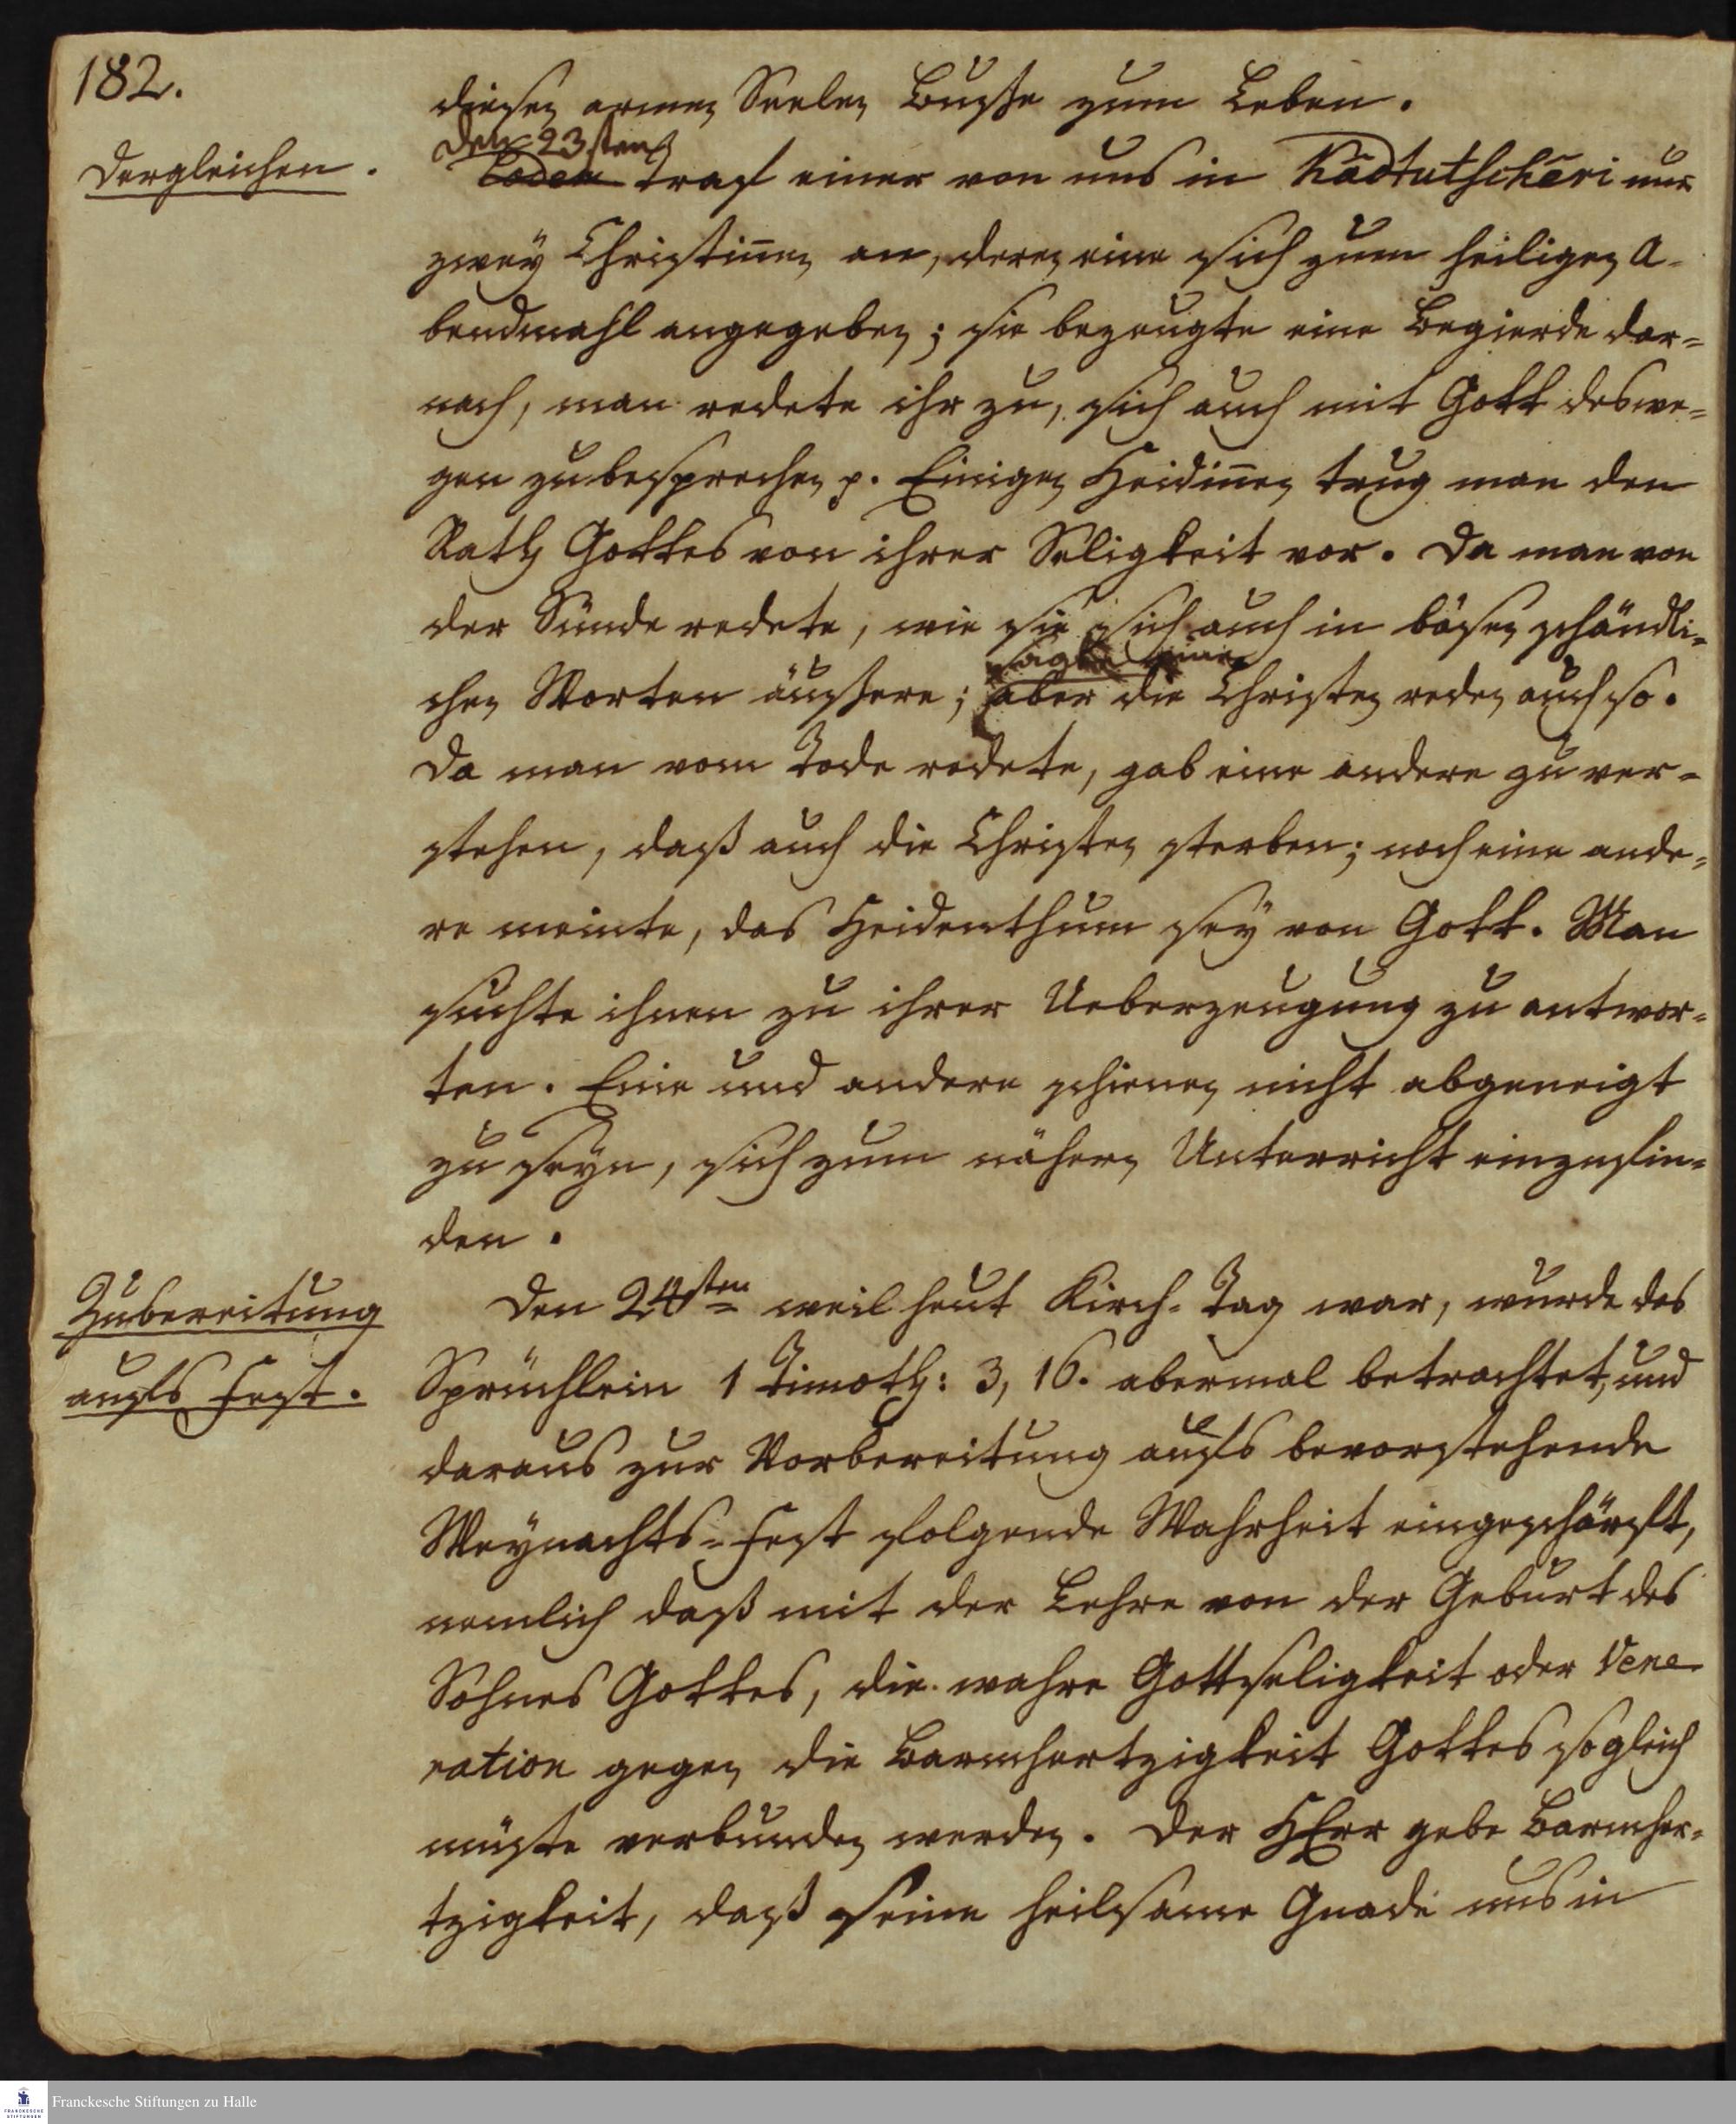 182.
diesen armen Seelen Busse zum Leben.
Dergleichen.
Den 23sten
Eodem traf einer von uns in Kādtutschēri nur
zwey Christiñen an, deren eine sich zum heiligen A-
bendmahl angegeben; sie bezeugte eine Begierde dar-
nach, man redete ihr zu, sich auch mit Gott deswe-
gen zu besprechen p. Einigen Heidiñen trug man den
Rath Gottes von ihrer Seligkeit vor. Da man von
der Sünde redete, wie sie sich auch in bösen schändli-
sagte eine
chen Worten äussere; aber die Christen reden auch so.
Da man vom Tode redete, gab eine andere zu ver-
stehen, daß auch die Christen sterben; noch eine ande-
re meinte, das Heidenthum sey von Gott. Man
suchte ihnen zu ihrer Ueberzeugung zu antwor-
ten. Eine und andere schienen nicht abgeneigt
zu seyn, sich zum nähern Unterricht einzufin-
den.
Zubereitung
aufs Fest.
Den 24sten weil heut Kirch-Tag war, wurde das
Sprüchlein 1 Timoth: 3, 16. abermal betrachtet, und
daraus zur Vorbereitung aufs bevorstehende
Weynachts-Fest folgende Wahrheit eingeschärft,
nemlich daß mit der Lehre von der Geburt des
Sohnes Gottes, die wahre Gottseligkeit oder Vene
ration gegen die Barmhertzigkeit Gottes sogleich
müste verbunden werden. Der HErr gebe Barmher-
tzigkeit, daß seine heilsame Gnade uns in
Franckesche Stiftungen zu Halle
FRANCKESCHE
STIFTUNGEN